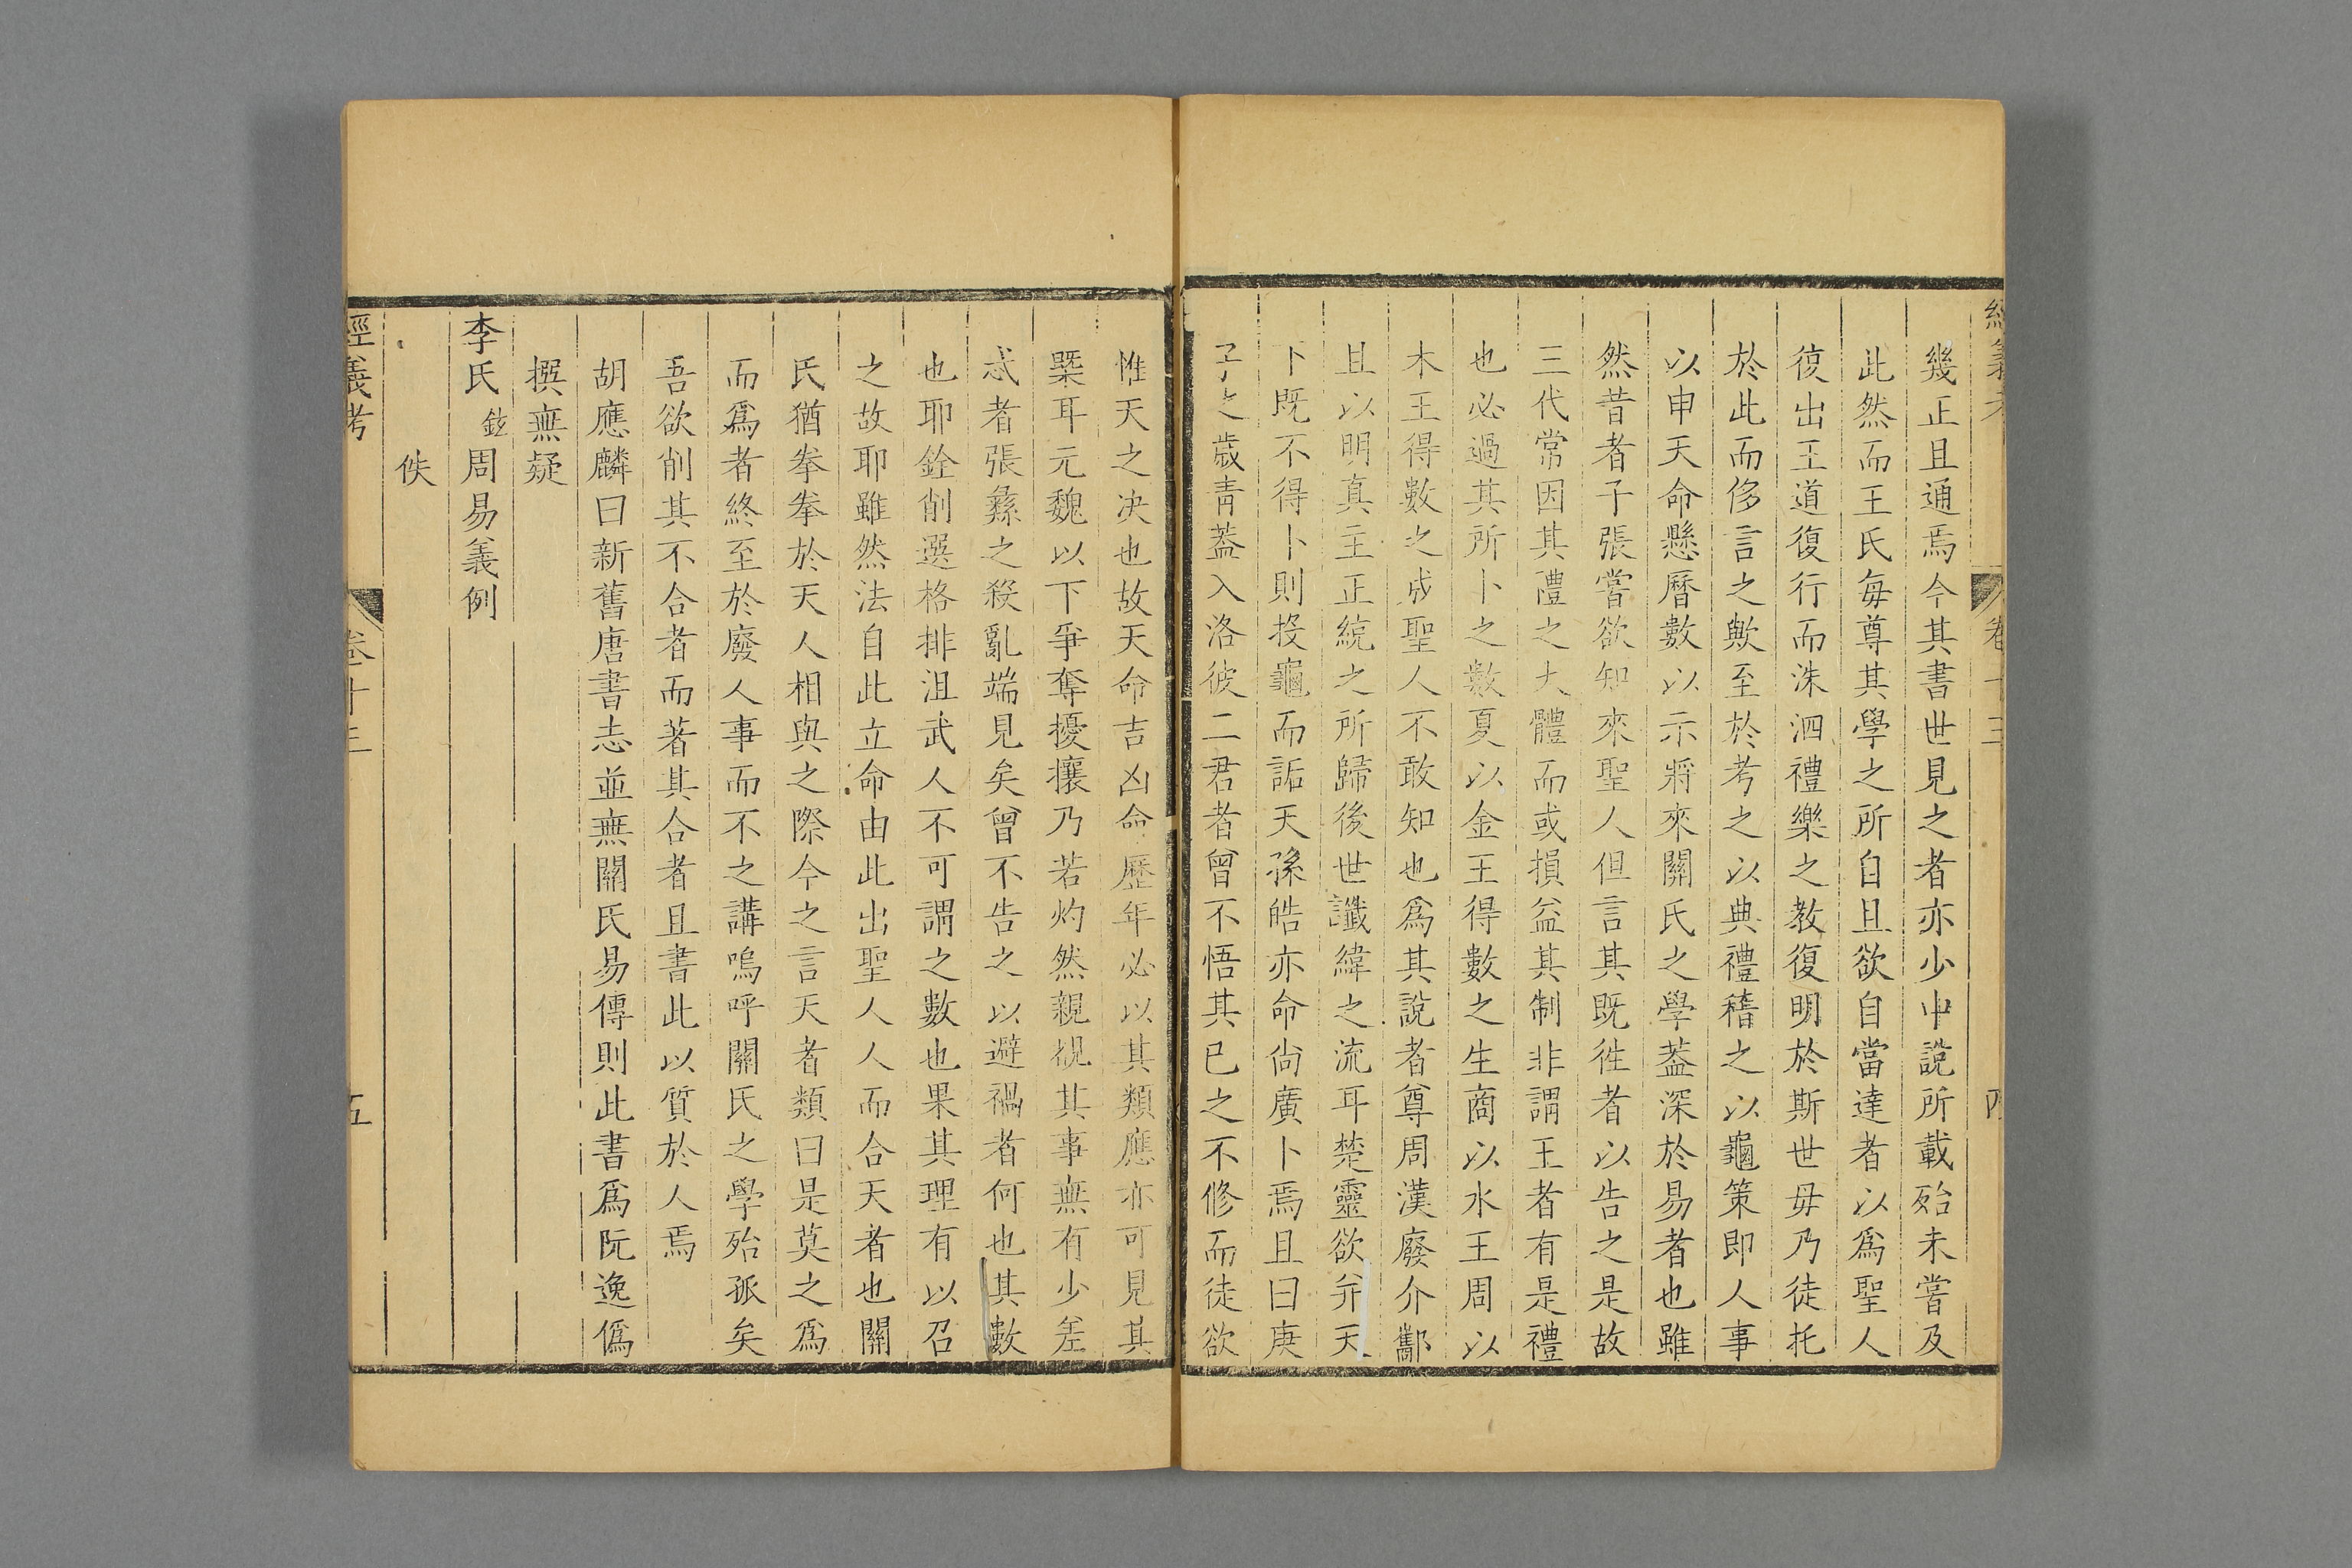 幾正且通焉今其書世見之者亦少中說所載殆未嘗及
此然而王氏每尊其學之所自且欲自當達者以爲聖人
復出王道復行而洙泗禮樂之教復明於斯世毋乃徒托
於此而侈言之歟至於考之以典禮稽之以龜策即人事
以申天命懸曆數以示將來關氏之學蓋深於易者也雖
然昔者子張嘗欲知來聖人但言其既徃者以告之是故
三代常因其禮之大體而或損益其制非謂王者有是禮
也必過其所卜之數夏以金王得數之生商以水王周以
木王得數之成聖人不敢知也爲其說者尊周漢廢介酅
且以明真主正統之所歸後世讖緯之流耳楚靈欲幷天
下既不得卜則投龜而詬天孫皓亦命尙廣卜焉且曰庚
子之歲青蓋入洛彼二君者曾不悟其已之不修而徒欲
惟天之决也故天命吉凶命歷年必以其類應亦可見其
槩耳元魏以下爭奪擾攘乃若灼然親覩其事無有少差
忒者張彝之殺亂端見矣曾不告之以避禍者何也其數
也耶銓削選格排沮武人不可謂之數也果其理有以召
之故耶雖然法自此立命由此出聖人人而合天者也關
氏猶拳拳於天人相與之際今之言天者類曰是莫之爲
而爲者終至於廢人事而不之講嗚呼關氏之學殆孤矣
吾欲削其不合者而著其合者且書此以質於人焉
胡應麟曰新舊唐書志並無關氏易傳則此書爲阮逸僞
撰無疑
李氏鉉周易義例
佚
經義考 卷十三 五